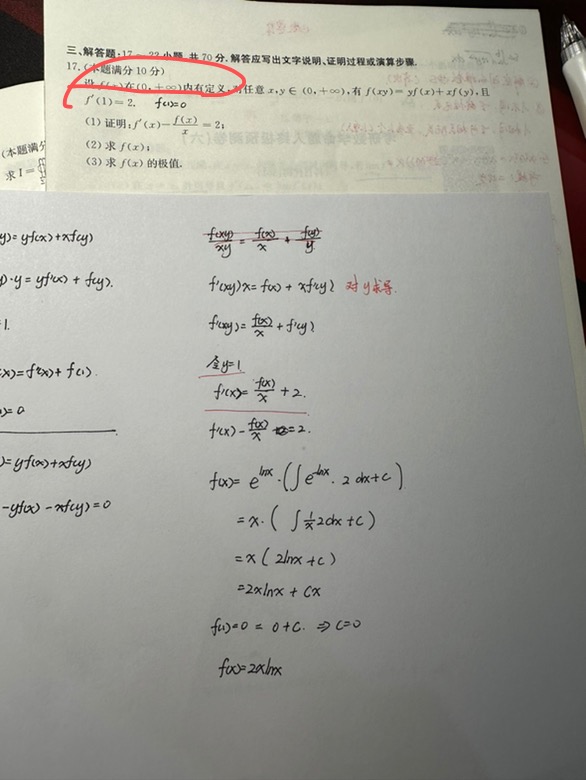 三、解答题:17~22小题,共70分.解答应写出文字说明、证明过程或演算步骤.
17.(本题满分10分)
设f(x)在(0,+∞)内有定义,对任意x,y∈(0,+∞),有f(xy)=yf(x)+xf(y),且
f′(1)=2. f(1)=0
(1)证明:f′(x)-f(x)/x=2;
(2)求f(x);
(3)求f(x)的极值.
(本题满分
求I=
y)=yf(x)+xf(y)
)·y=yf'(x)+f(y).
1.
x)=f'(x)+f(1).
)=0
)=yf(x)+xf(y)
-yf(x)-xf(y)=0
f(xy)/xy=f(x)/x+f(y)/y
f'(xy)x=f(x)+xf'(y) 对y求导.
f'(xy)=f(x)/x+f'(y)
令y=1.
f'(x)=f(x)/x+2.
f'(x)-f(x)/x=2.
f(x)=e^{lnx}·(∫e^{-lnx}·2dx+c)
=x·(∫1/x 2dx+c)
=x(2lnx+c)
=2xlnx+cx
f(1)=0=0+C.⇒C=0
f(x)=2xlnx